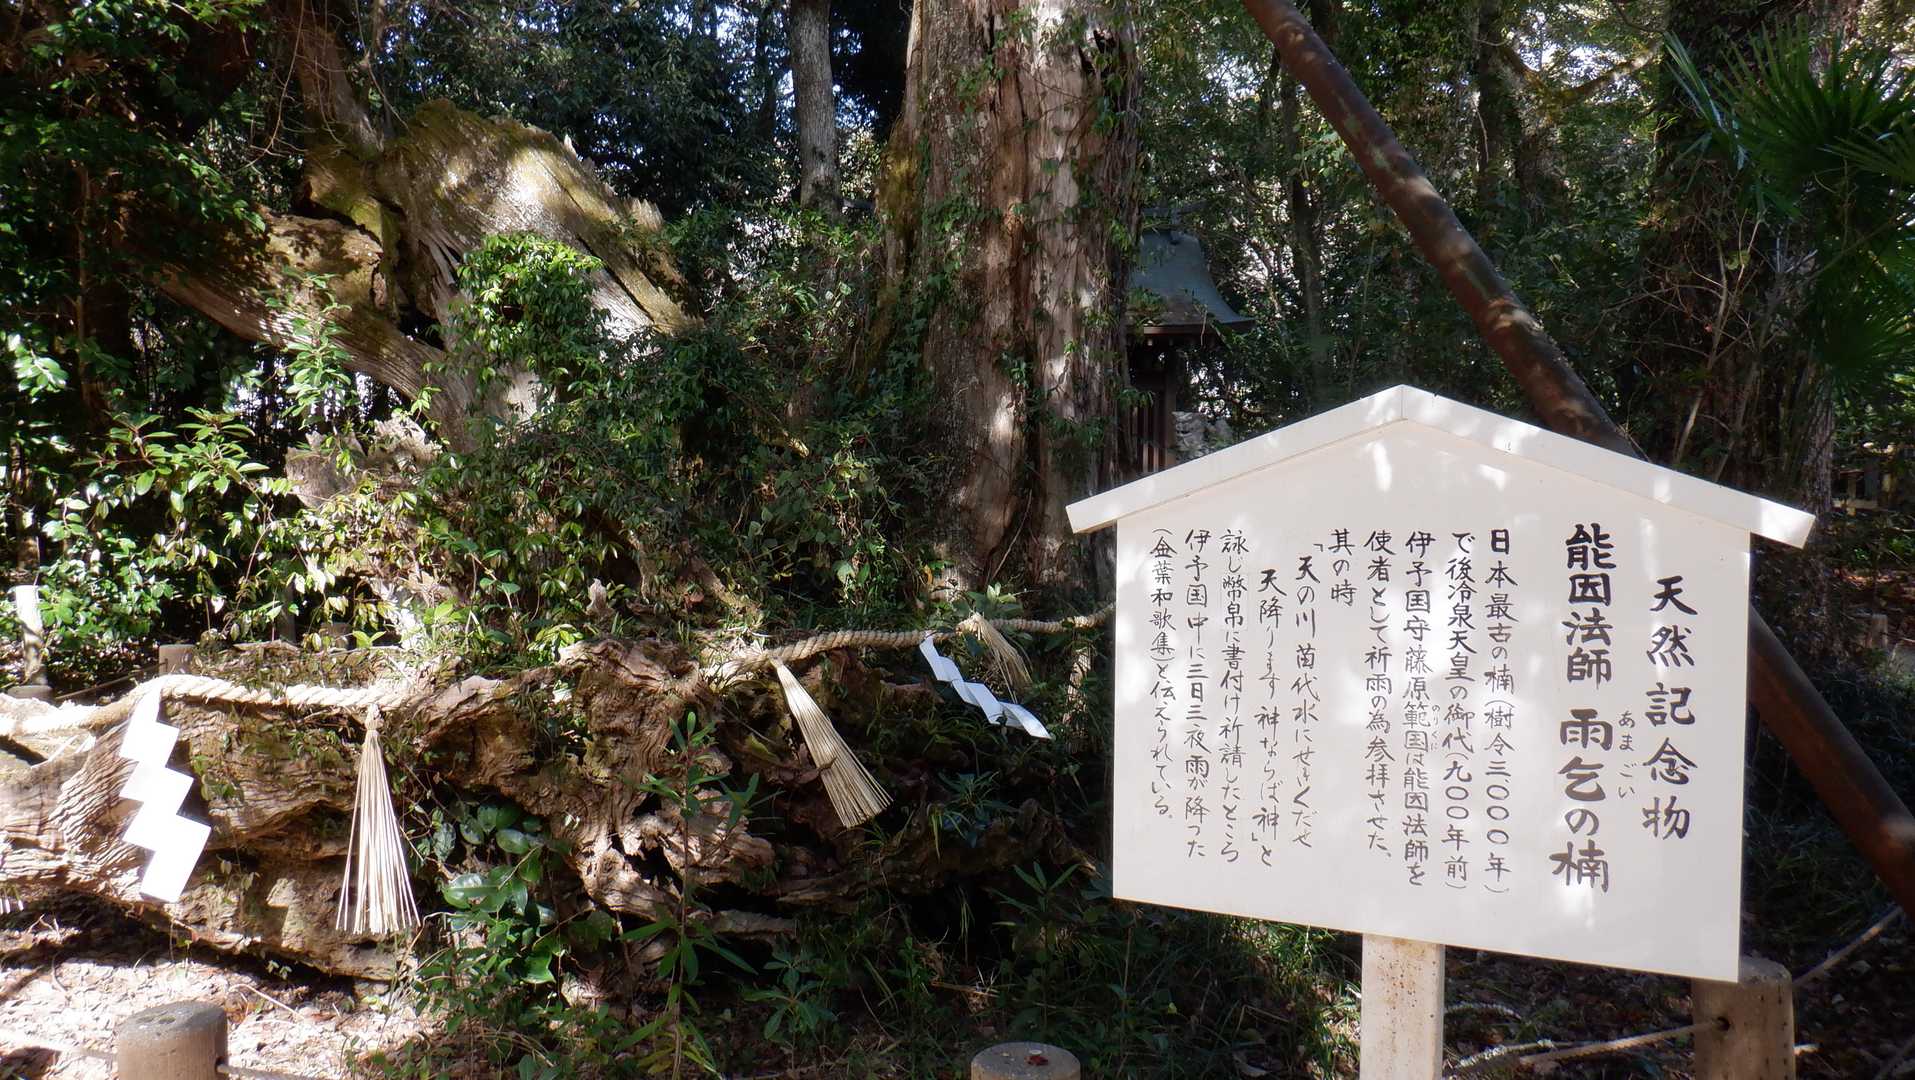 天然記念物
能因法師 雨乞の楠
あまごい
日本最古の楠(樹令三〇〇〇年)
で後冷泉天皇の御代(九〇〇年前)
伊予国守藤原範国は能因法師を
のりくに
使者として祈雨の為参拝させた、
其の時
「天の川 苗代水にせきくだせ
天降ります 神ならば神」と
詠じ幣帛に書付け祈請したところ
伊予国中に三日三夜雨が降った
(金葉和歌集)と伝えられている。